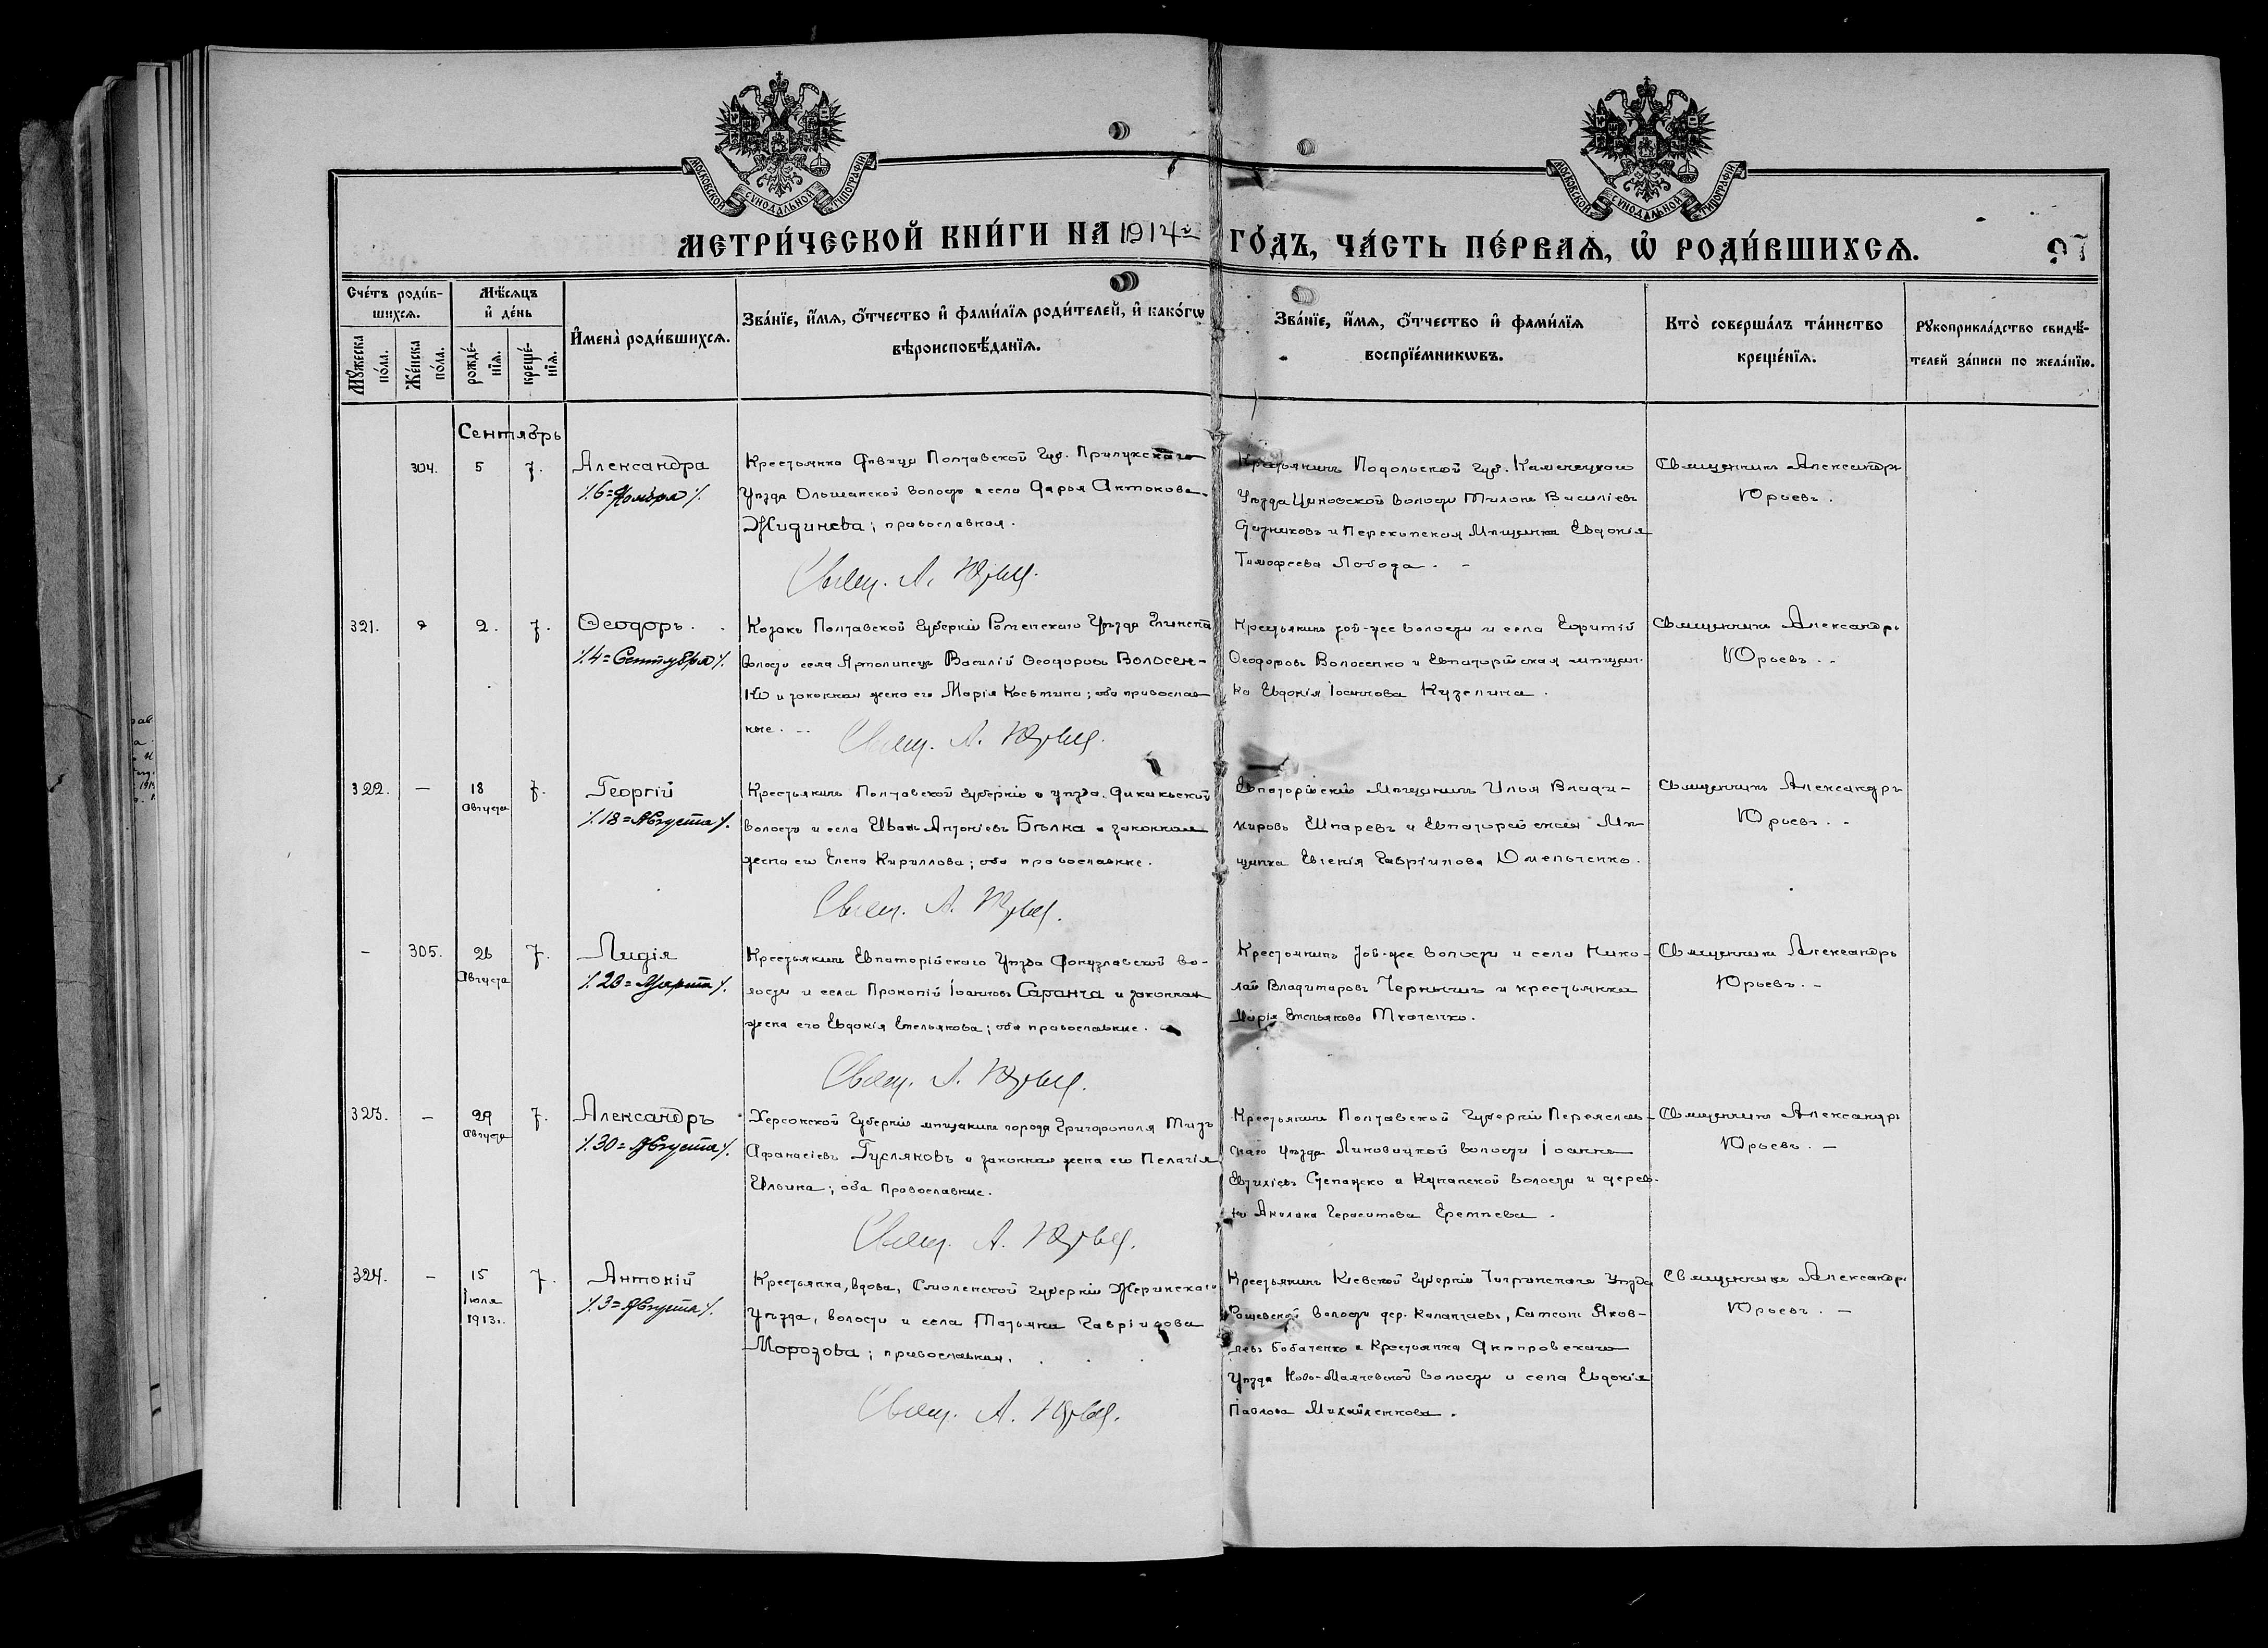 МОСКОВСКОЙ СѴНОДАЛЬНОЙ ТИПОГРАФІИ
МОСКОВСКОЙ СѴНОДАЛЬНОЙ ТИПОГРАФІИ
МЕТРИ́ЧЕСКОЙ КНИ́ГИ НА 1914й ГО́ДЪ, ЧА́СТЬ ПЕ́РВАѦ, Ѽ РОДИ́ВШИХСѦ.
97
Сче́тъ роди́в-
шихсѧ.
Мѣ́сѧцъ
и҆ де́нь
И҆мена̀ роди́вшихсѧ.
Зва́нїе, и҆́мѧ, ѻ҆́тчество и҆ фами́лїѧ роди́телей, и҆ како́гѡ
вѣроисповѣ́данїѧ.
Зва́нїе, и҆́мѧ, ѻ҆́тчество и҆ фами́лїѧ
воспрїе́мникѡвъ.
Кто̀ соверша́лъ та́инство
креще́нїѧ.
Рꙋкоприкла́дство свидѣ́-
телей за́писи по жела́нїю.
Мꙋ́жеска
по́ла.
Же́нска
по́ла.
рожде́-
нїѧ.
креще́-
нїѧ.
Сентябрь
304. 5 7. Александра
Крестьянка дѣвица Полтавской Губ. Прилукскаго
Уѣзда Ольшанской волости и села Дарья Антонова
Жидинева; православная.
Свящ. А. Юрьев.
Крестьянинъ Подольской Губ. Каменецкаго
Уѣзда Циковской волости Тихонъ Василіевъ
и Перекопская Мѣщанка Евдокія
Тимофеева Лобода.
Священникъ Александръ
Юрьевъ.
321. 2. 7. Ѳеодоръ.
/.4=Сентября/.
Козакъ Полтавской Губерніи Роменскаго Уѣзда
волости села Ярмолинецъ Василій Ѳеодоровъ Волосен-
ко и законная жена его Марія Косьмина; оба православ
ные.
Свящ. А. Юрьев.
Крестьянинъ той-же волости и села Ефимій
Ѳеодоровъ Волосенко и Евпаторійская мѣщан-
ка Евдокія Іоаннова Кузелина.
Священникъ Александръ
Юрьевъ.
322. — 18 7. Георгій
Августа
/.18=Августа/.
Крестьянинъ Полтавской Губерніи и уѣзда. Диканьской
волости и села Иванъ Антоніевъ Бѣлка и законная
жена его Елена Кириллова; оба православные.
Свящ. А. Юрьев.
Евпаторійскій Мѣщанинъ Илья Влади-
мировъ Шпаревъ и Евпаторійская Мѣ-
щанка Евгенія Гавріилова Омельченко.
Священникъ Александръ
Юрьевъ.
— 305. 26 7. Лидія
Августа
/.23=Марта/.
Крестьянинъ Евпаторійскаго Уѣзда Донузлавской во-
лости и села Прокопій Іоанновъ Саранча и законная
жена его Евдокія Емельянова; оба православные.
Свящ. А. Юрьев.
Крестьянинъ той-же волости и села Нико-
лай Владимировъ и крестьянка
Марія Емельянова Ткаченко.
Священникъ Александръ
Юрьевъ.
323. — 29 7. Александръ
Августа
/.30=Августа/.
Херсонской Губерніи мѣщанинъ города Григориополя
Афанасіевъ Гусляковъ и законная жена его Пелагія
Ильина; оба Православные.
Свящ. А. Юрьев.
Крестьянинъ Полтавской Губерніи Переяслав-
скаго Уѣзда волости Іоаннъ
Евтихіевъ Степанско и волости и дерев-
ни Акилина Герасимова Еремѣева.
Священникъ Александръ
Юрьевъ. —
324. — 15 7. Антоній
Іюля
1913г.
/.3=Августа/.
Крестьянка, вдова, Смоленской Губерніи
Уѣзда, волости и села Татьяна Гавріилова
Морозова; православная.
Свящ. А. Юрьев.
Крестьянинъ Кіевской Губерніи Чигринскаго Уѣзда
волости дер. Калантаевъ, Самсонъ Яков-
левъ Бабаченко и Крестьянка Днѣпровскаго
Уѣзда Ново-Маячковской волости и села Евдокія
Павлова Михайленкова.
Священникъ Александръ
Юрьевъ. —